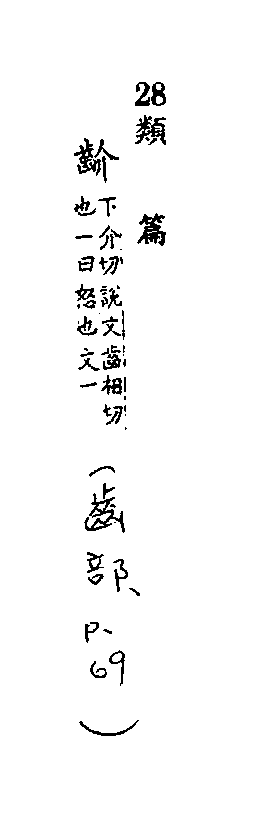 28 類篇
齘 下介切說文齒相切
也一曰怒也文一
(齒部、p.69)